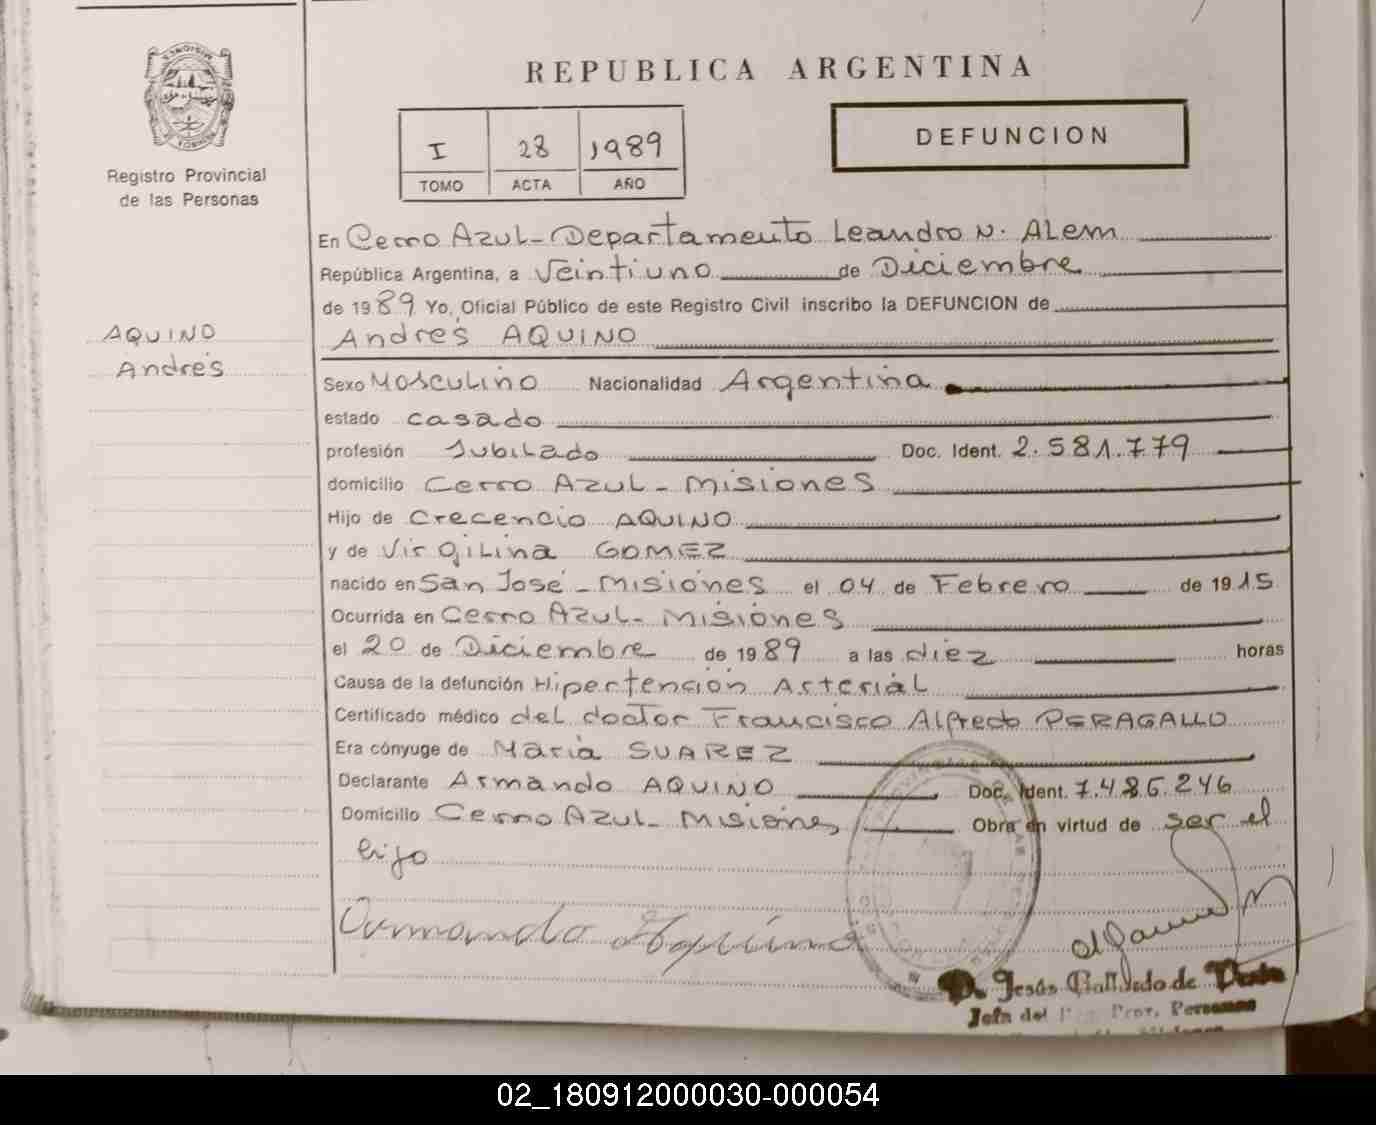 REPUBLICA ARGENTINA
I 28 1989
TOMO ACTA AÑO
DEFUNCION
Registro Provincial
de las Personas
AQUINO
Andrés
En Cerro Azul - Departamento Leandro N. Alem
República Argentina, a Veintiuno de Diciembre
de 1989 Yo, Oficial Público de este Registro Civil inscribo la DEFUNCION de
Andrés AQUINO
Sexo Masculino Nacionalidad Argentina
estado casado
profesión Jubilado Doc. Ident. 2.581.779
domicilio Cerro Azul - Misiones
Hijo de Crecencio AQUINO
y de Virgilina GOMEZ
nacido en San José - Misiones el 04 de Febrero de 1915
Ocurrida en Cerro Azul - Misiones
el 20 de Diciembre de 1989 a las diez horas
Causa de la defunción Hipertención Arterial
Certificado médico del doctor Francisco Alfredo PERAGALLO
Era cónyuge de Maria SUAREZ
Declarante Armando AQUINO Doc. Ident. 7.486.246
Domicilio Cerro Azul - Misiones Obra en virtud de ser el
hijo
Armando Aquino
Jesús Gallardo de
Jefa del Prov. Personas
02_180912000030-000054